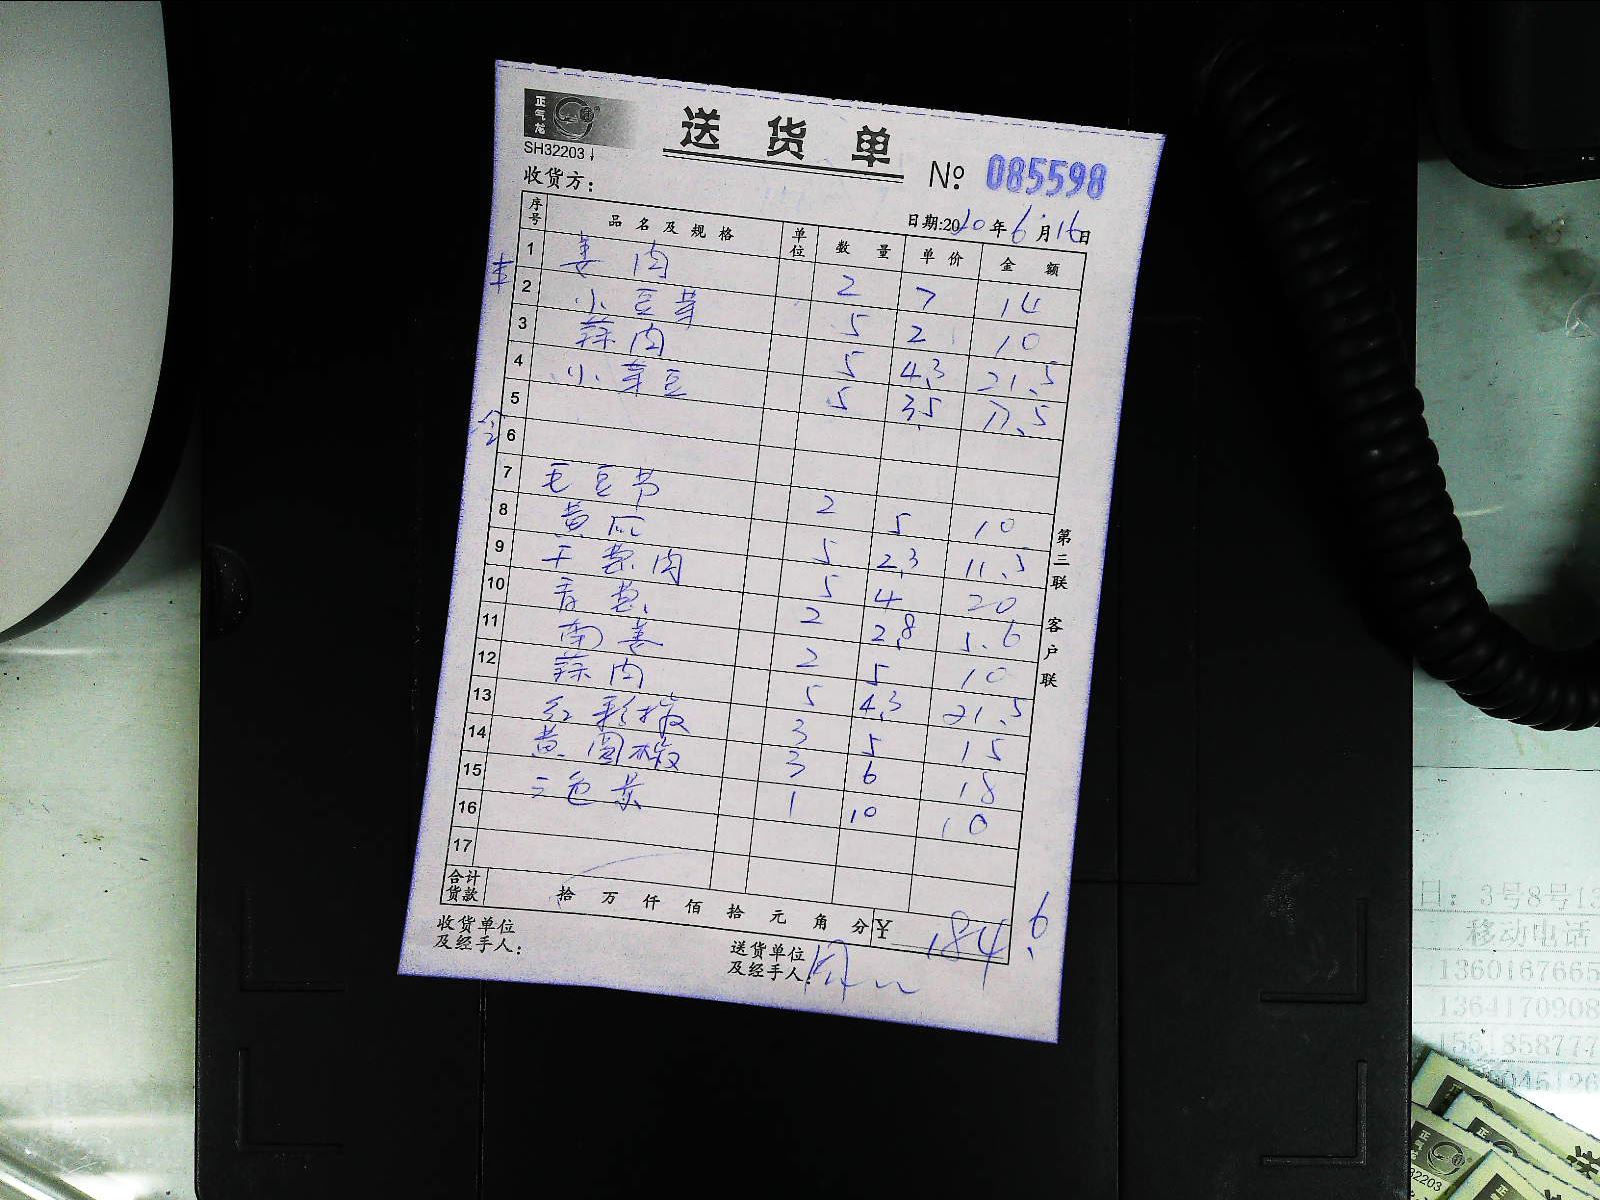 正气龙
SH32203
送货单
№ 085598
收货方：
日期:2020年6月16日
序号 品名及规格 单位 数量 单价 金额
1 姜肉 2 7 14
2 小豆芽 5 2 10
3 蒜肉 5 4.3 21.5
4 小芽豆 5 3.5 17.5
5
6
7 毛豆节 2 5 10
8 黄瓜 5 2.3 11.5
9 干葱肉 5 4 20
10 青葱 2 2.8 5.6
11 南姜 2 5 10
12 蒜肉 5 4.3 21.5
13 红彩椒 3 5 15
14 黄圆椒 3 6 18
15 三色 1 10 10
16
17
合计货款 拾万仟佰拾元角分 ¥ 184.6
收货单位及经手人：
送货单位及经手人：
第三联 客户联
日：3号8号13
移动电话
1360167665
1364170908
32203